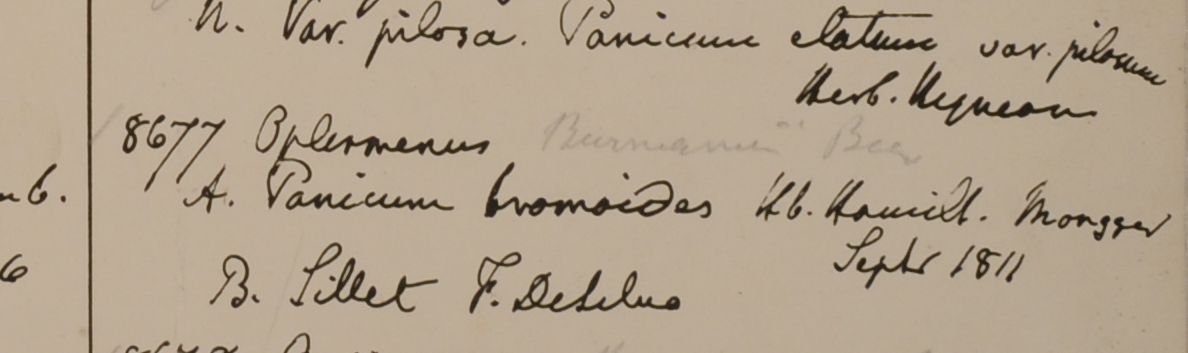 N. Var. pilosa. Panicum elatum var. pilosum
Herb. Heynean
8677 Oplismenus Burmanni Beauv
A. Panicum bromoides Hb. Hamilt. Monggir
Septr 1811
B. Sillet F. DeSilva
mb.
6